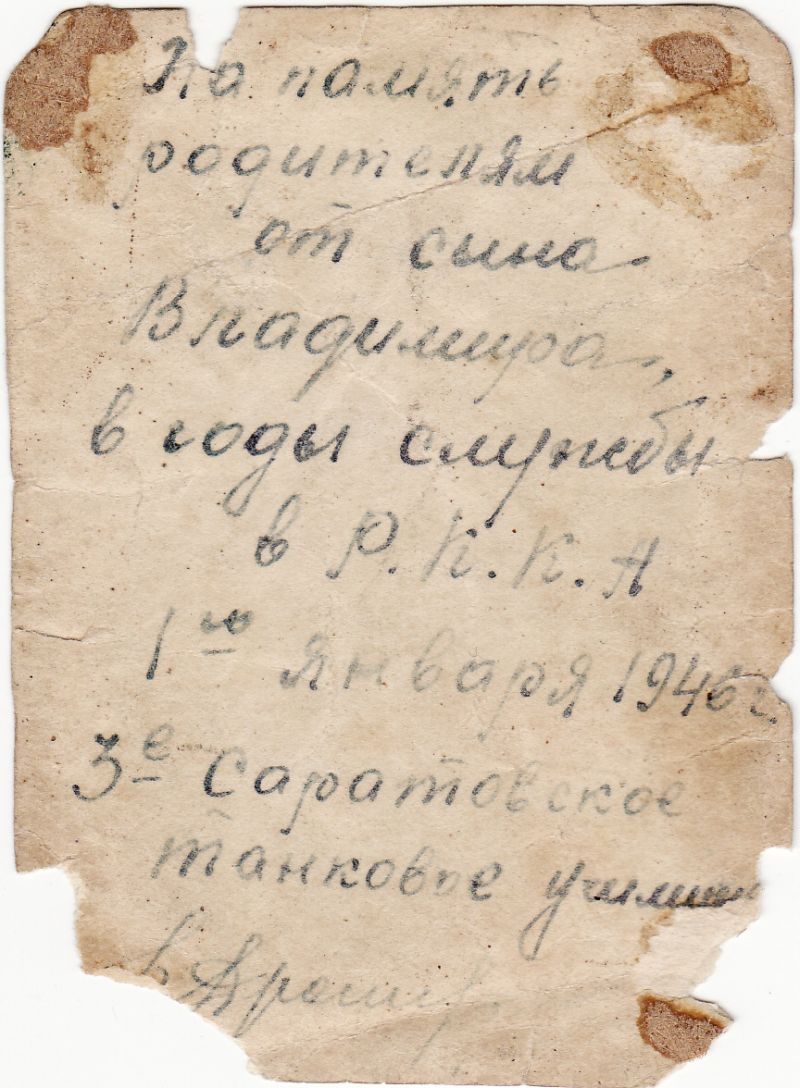 На память
родителям
от сына
Владимира,
в годы службы
в Р.К.К.А
1го января 1946 г.
3е Саратовское
танковое